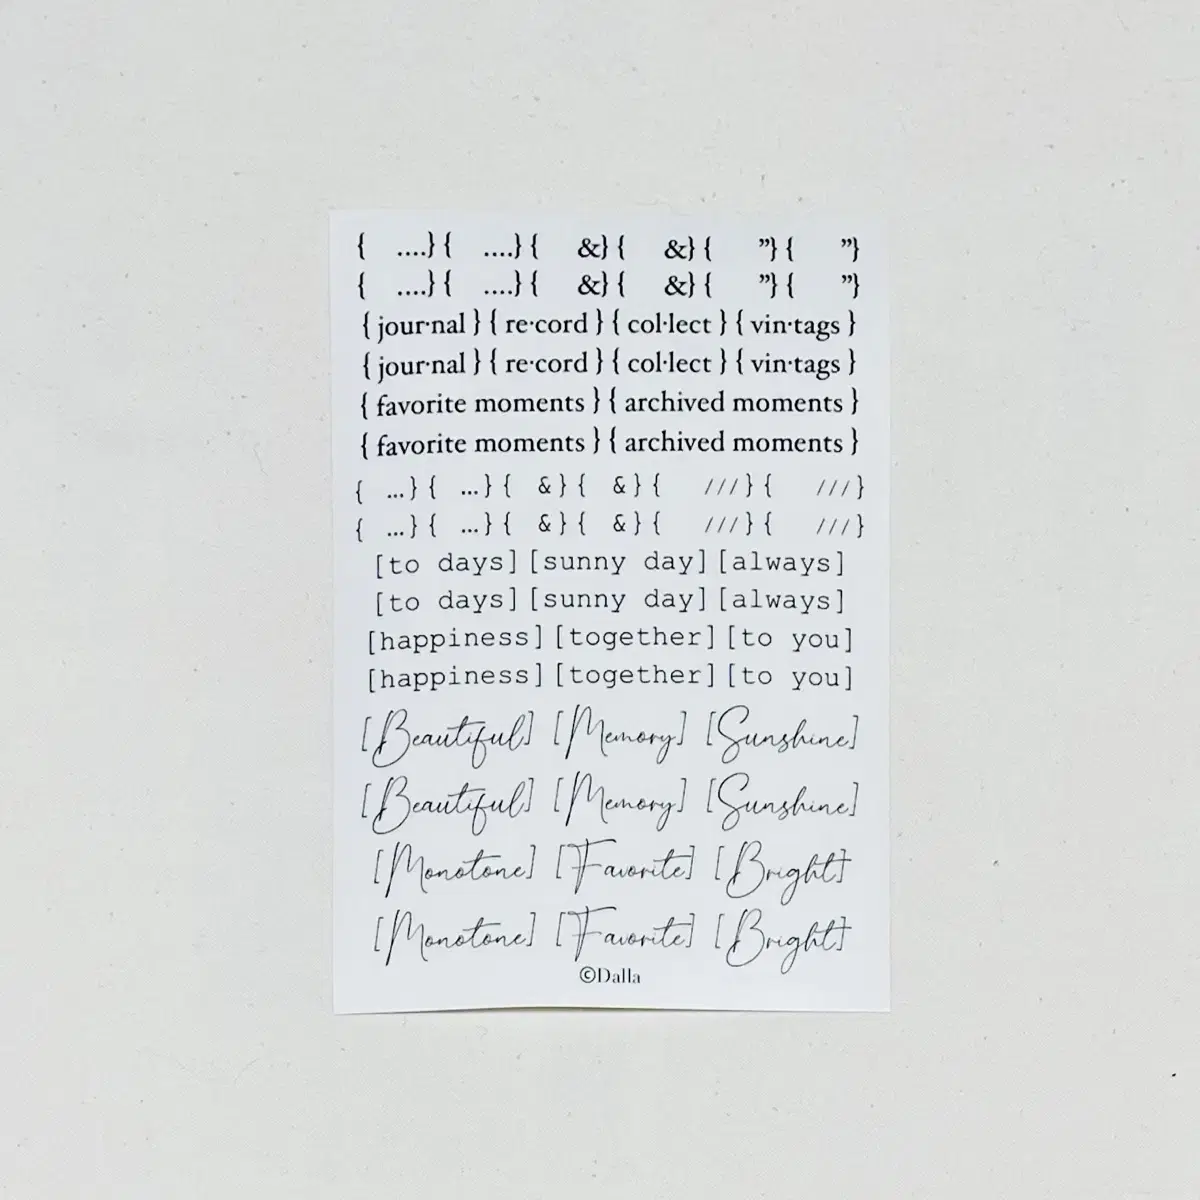 { ....} { ....} { &} { &} { ”} { ”}
{ ....} { ....} { &} { &} { ”} { ”}
{ jour·nal } { re·cord } { col·lect } { vin·tags }
{ jour·nal } { re·cord } { col·lect } { vin·tags }
{ favorite moments } { archived moments }
{ favorite moments } { archived moments }
{ ...} { ...} { & } { & } { /// } { /// }
{ ...} { ...} { & } { & } { /// } { /// }
[to days] [sunny day] [always]
[to days] [sunny day] [always]
[happiness] [together] [to you]
[happiness] [together] [to you]
[Beautiful] [Memory] [Sunshine]
[Beautiful] [Memory] [Sunshine]
[Monotone] [Favorite] [Bright]
[Monotone] [Favorite] [Bright]
©Dalla